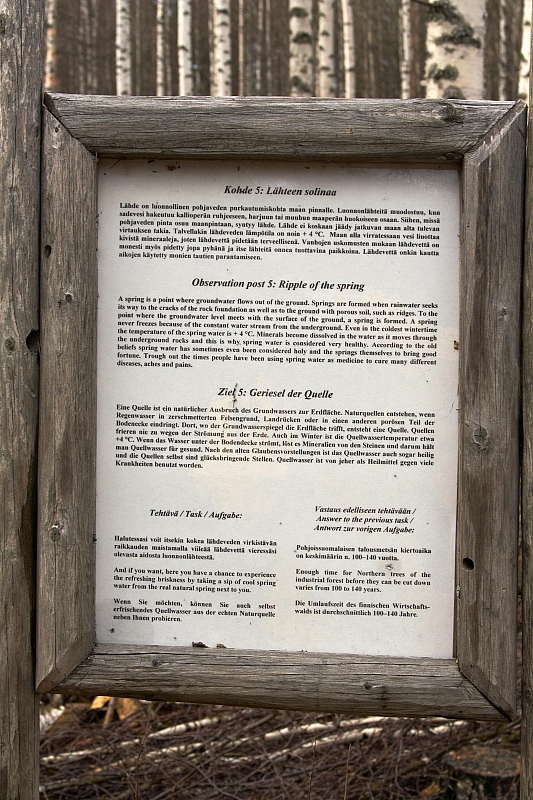 Kohde 5: Lähteen solinaa
Lähde on luonnollinen pohjaveden purkautumiskohta maan pinnalle. Luonnonlähteitä muodostuu, kun
sadevesi hakeutuu kallioperän ruhjeeseen, harjuun tai muuhun maaperän huokoiseen osaan. Siihen, missä
pohjaveden pinta osuu maanpintaan, syntyy lähde. Lähde ei koskaan jäädy jatkuvan maan alta tulevan
virtauksen takia. Talvellakin lähdeveden lämpötila on noin + 4 °C. Maan alla virratessaan vesi liuottaa
kivistä mineraaleja, joten lähdevettä pidetään terveellisenä. Vanhojen uskomusten mukaan lähdevettä on
monesti myös pidetty jopa pyhänä ja itse lähteitä onnea tuottavina paikkoina. Lähdevettä onkin kautta
aikojen käytetty monien tautien parantamiseen.
Observation post 5: Ripple of the spring
A spring is a point where groundwater flows out of the ground. Springs are formed when rainwater seeks
its way to the cracks of the rock foundation as well as to the ground with porous soil, such as ridges. To the
point where the groundwater level meets with the surface of the ground, a spring is formed. A spring
never freezes because of the constant water stream from the underground. Even in the coldest wintertime
the temperature of the spring water is + 4 °C. Minerals become dissolved in the water as it moves through
the underground rocks and this is why, spring water is considered very healthy. According to the old
beliefs spring water has sometimes even been considered holy and the springs themselves to bring good
fortune. Trough out the times people have been using spring water as medicine to cure many different
diseases, aches and pains.
Ziel 5: Geriesel der Quelle
Eine Quelle ist ein natürlicher Ausbruch des Grundwassers zur Erdfläche. Naturquellen entstehen, wenn
Regenwasser in zerschmetterten Felsengrund, Landrücken oder in einen anderen porösen Teil der
Bodenecke eindringt. Dort, wo der Grundwasserspiegel die Erdfläche trifft, entsteht eine Quelle. Quellen
frieren nie zu wegen der Strömung aus der Erde. Auch im Winter ist die Quellwassertemperatur etwa
+4 °C. Wenn das Wasser unter der Bodendecke strömt, löst es Mineralien von den Steinen und darum hält
man Quellwasser für gesund. Nach den alten Glaubensvorstellungen ist das Quellwasser auch sogar heilig
und die Quellen selbst sind glücksbringende Stellen. Quellwasser ist von jeher als Heilmittel gegen viele
Krankheiten benutzt worden.
Tehtävä / Task / Aufgabe:
Halutessasi voit itsekin kokea lähdeveden virkistävän
raikkauden maistamalla viileää lähdevettä vieressäsi
olevasta aidosta luonnonlähteestä.
And if you want, here you have a chance to experience
the refreshing briskness by taking a sip of cool spring
water from the real natural spring next to you.
Wenn Sie möchten, können Sie auch selbst
erfrischendes Quellwasser aus der echten Naturquelle
neben Ihnen probieren.
Vastaus edelliseen tehtävään /
Answer to the previous task /
Antwort zur vorigen Aufgabe:
Pohjoissuomalaisen talousmetsän kiertoaika
on keskimäärin n. 100–140 vuotta.
Enough time for Northern trees of the
industrial forest before they can be cut down
varies from 100 to 140 years.
Die Umlaufszeit des finnischen Wirtschafts-
walds ist durchschnittlich 100–140 Jahre.